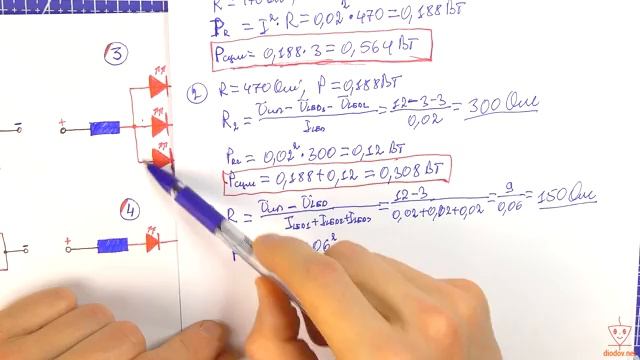 P_R = I² · R = 0,02² · 470 = 0,188 Вт
Pсум = 0,188 · 3 = 0,564 Вт
3
2 R = 470 Ом; P = 0,188 Вт
R₂ = (Uип - U_LED1 - U_LED2) / I_LED = (12 - 3 - 3) / 0,02 = 300 Ом
P_R2 = 0,02² · 300 = 0,12 Вт
Pсум = 0,188 + 0,12 = 0,308 Вт
R = (Uип - U_LED) / (I_LED1 + I_LED2 + I_LED3) = (12 - 3) / (0,02 + 0,02 + 0,02) = 9 / 0,06 = 150 Ом
4
+
+
diodov.net